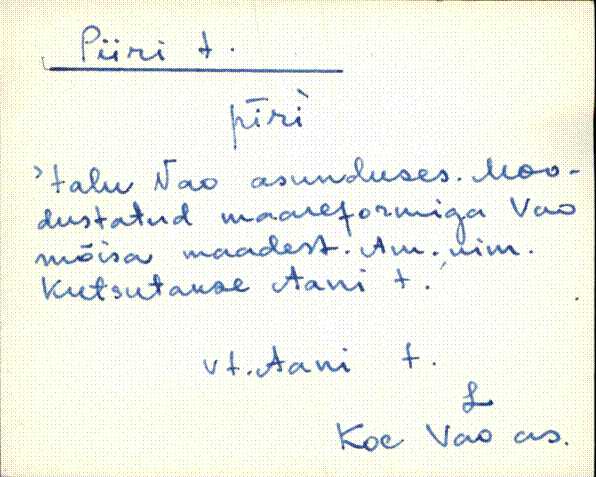 Piiri t.
pīri̇̀
talu Vao asunduses. Moo-
dustatud maareformiga Vao
mõisa maadest. Am. nim.
Kutsutakse Aani t.
vt. Aani t.
L
Koe Vao as.